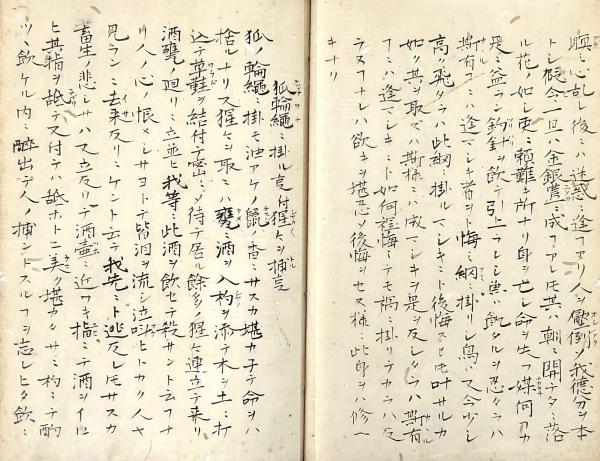 瞑ミ心乱レ後ニハ迷惑ニ逢フヿアリ人ヲ倒シ我徳分ヲ本
トシ今一日ハ金銀豊ニ成フアレ氏其ハ朝ニ開テタニ落
ル花如シ更ニ頼難キ所ナリ身ヲ亡シ命ヲ失フ媒何カ
是ニ益ラン釣針ヲ飲テ引上ラレシ魚ハ飢タルヲ忍フラハ
斯有フニハ逢マシキ者ヲト悔ミ網ニ掛リシ鳥ハ今少シ
高ク飛ラハ此網ニ掛ルマシキニト後悔スヒ氏叶サルカ
如ク其ヲ取ズハ斯様ニハ成マシキヲ是ヲ反シラハ斯有
フニハ逢マシキニト如何程悔ミテモ禍ニ掛リテカラハ反
ラスフナレハ欲キヲ堪忍ヲ後悔ヲセヌ様ニ此身ヲハ修ヘ
キナリ
狐輪縄ニ掛ル事付猩々ヲ捕事
狐ノ輪縄ニ掛モ油アケノ鼠ノ香ニサスカ堪カ子テ命ヲハ
捨ルナリ又猩々ヲ取ニハ甕ニ酒ヲ入杓ヲ添テ木ヲ土ニ打
込テ草鞋ヲ結付テ密ニメ待テ居ル餘多ノ猩々連立テ来リ
酒甕ノ廻リニ立並ヒ我等ニ此酒ヲ飲セテ殺サント云フナ
リ人ノ心ノ恨メシサヨトテ皆泪ヲ流シ泣叫ヒトカク人ヤ
見ラン去来反リニケント云テ我先ニト逃反レ氏サスカ
畜生ノ悲シサハ又立反リテ酒壷ニ近ツキ指ニテ酒ヲイロ
ヒ其指ヲ舐テ又付テハ舐ホトニ美ク堪カ子サニ杓ニテ酌
ツヽ飲ケル内ニ酔出テ人ノ捕ントスルフヲ忘レヒタ飲ニ